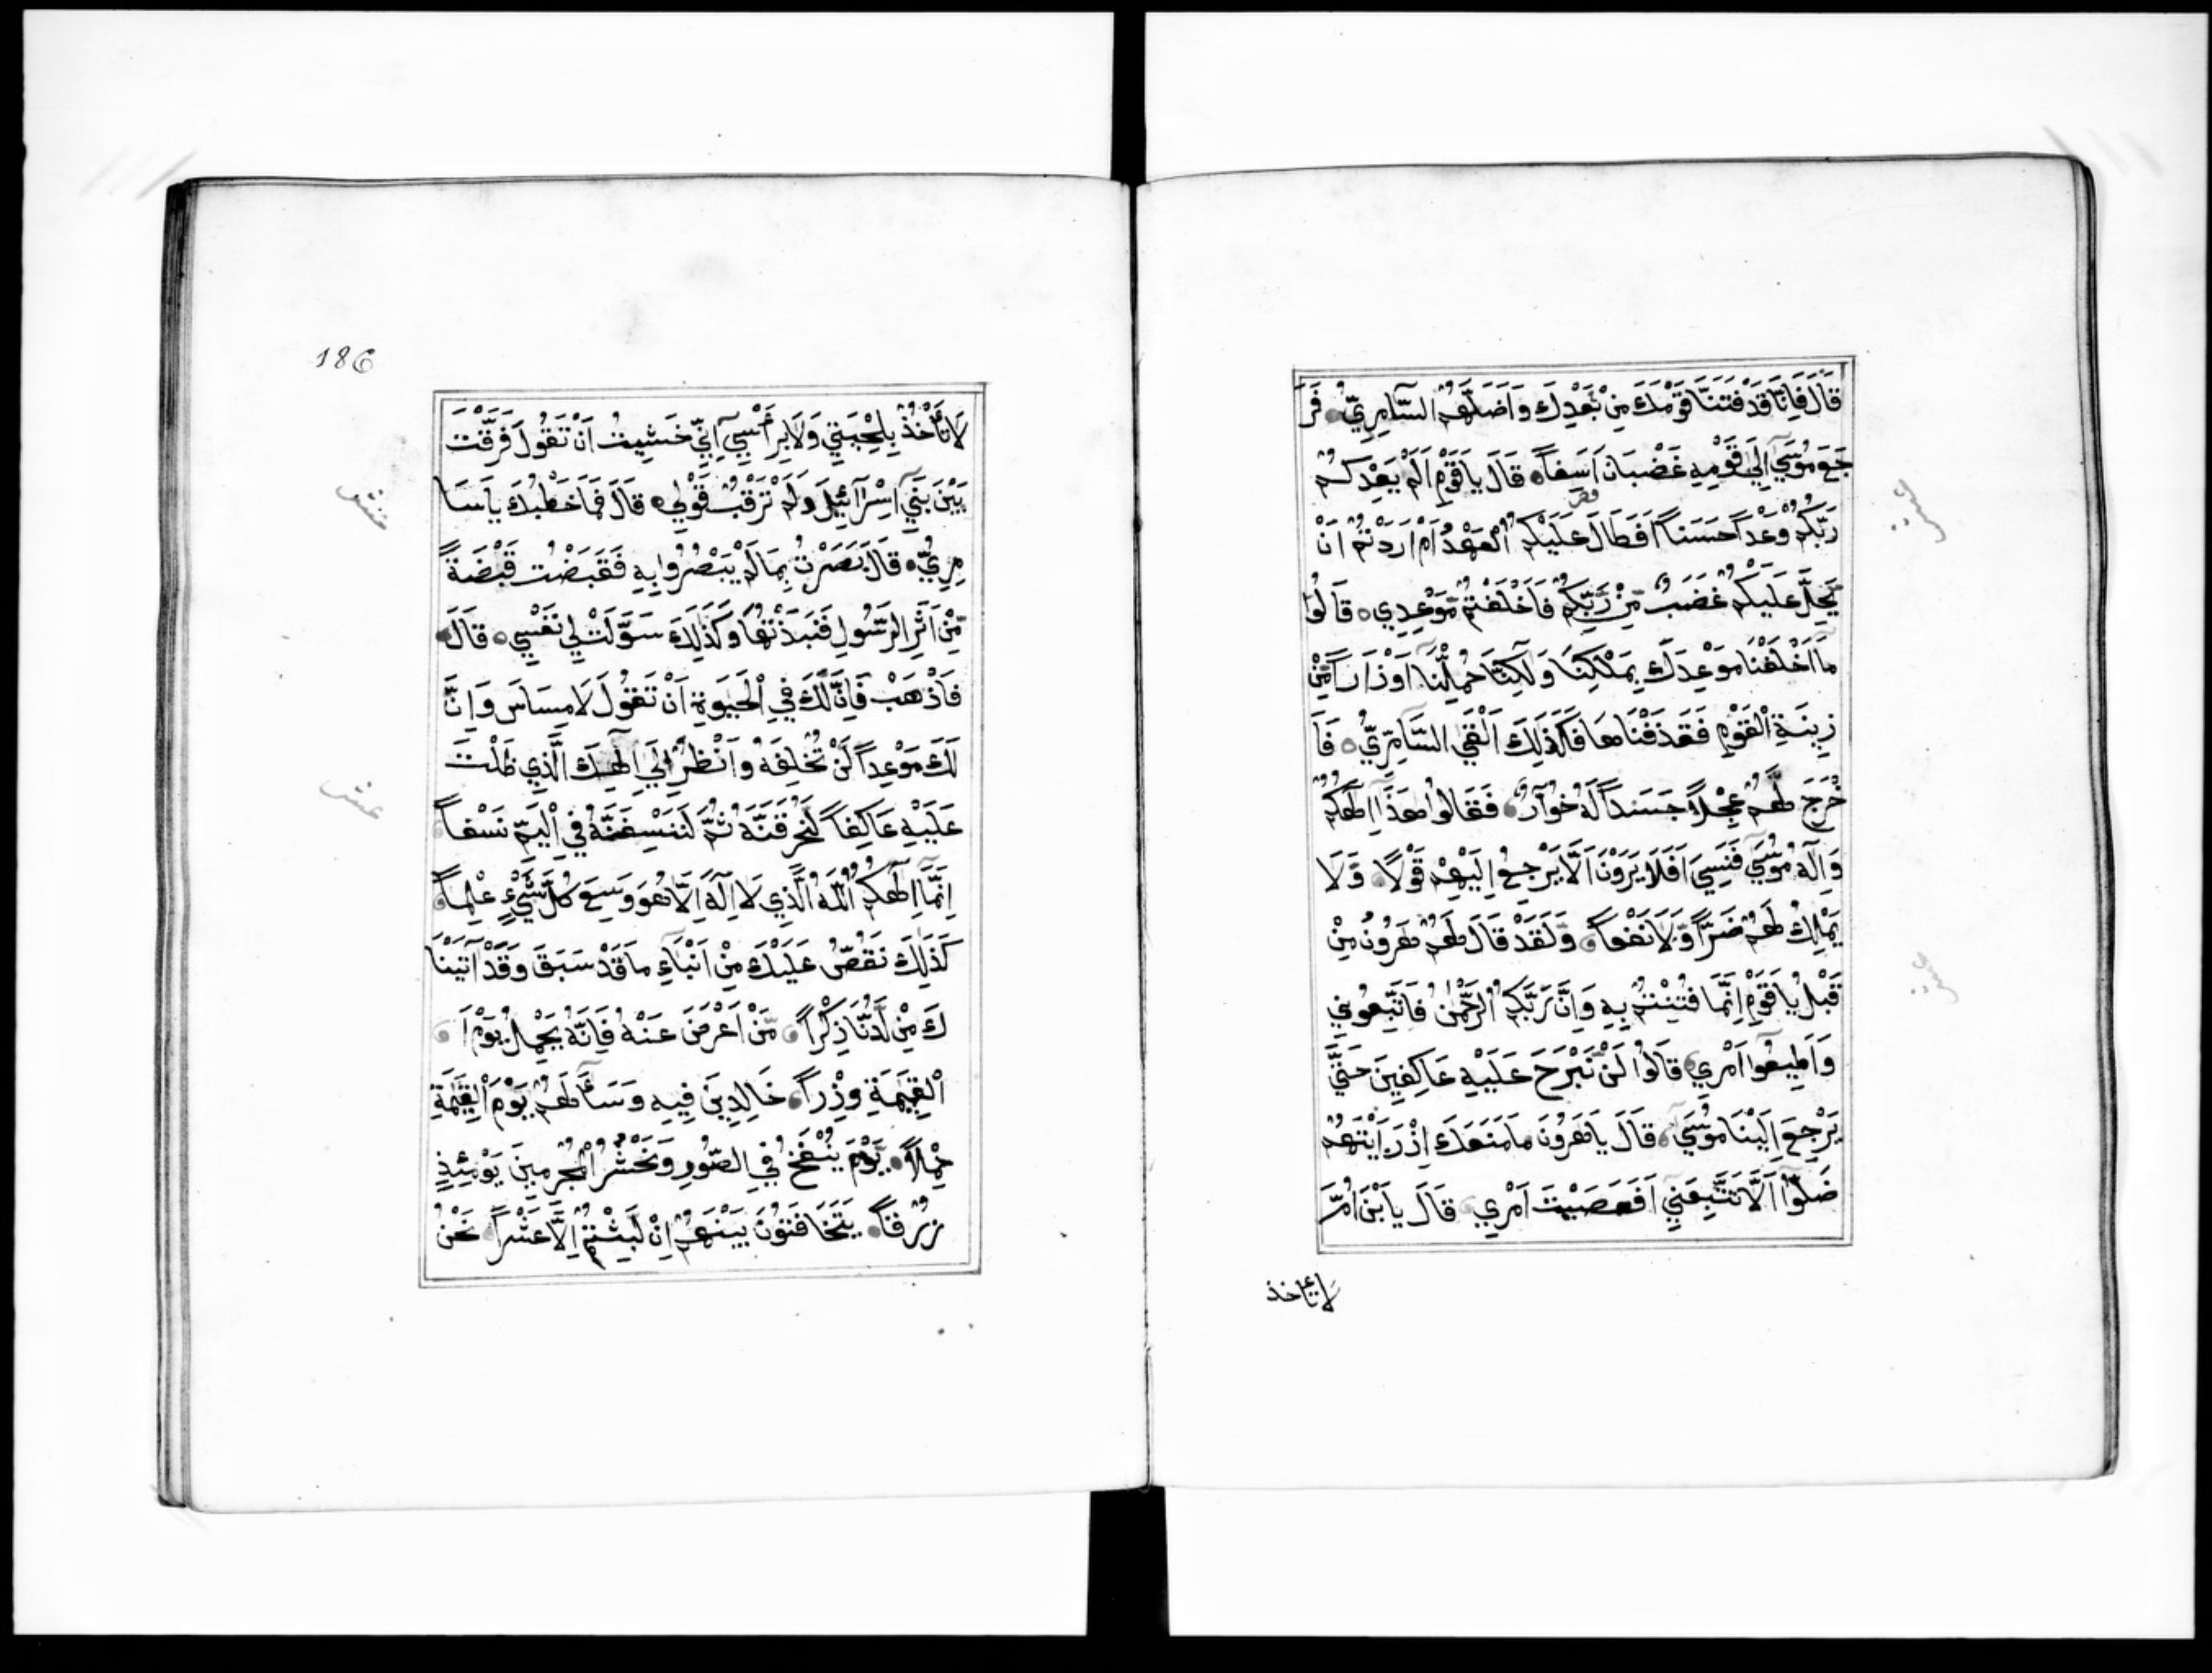 قَالَ فَاِنَّا قَدْ فَتَنَّا قَوْمَكَ مِنْ بَعْدِكَ وَاَضَلَّهُمُ السَّامِرِيُّ فَرَ
جَعَ مُوسَي اِلَي قَوْمِهِ غَضْبَانَ اَسِفاً قَالَ يَاقَوْمِ اَلَمْ يَعِدْكُمْ
رَبُّكُمْ وَعْداً حَسَناً اَفَطَالَ عَلَيْكُمُ الْعَهْدُ اَمْ اَرَدْتُمْ اَنْ
يَحِلَّ عَلَيْكُمْ غَضَبٌ مِّنْ رَّبِّكُمْ فَاَخْلَفْتُمْ مَوْعِدِي قَالُوا
مَا اَخْلَفْنَا مَوْعِدَكَ بِمَلْكِنَا وَلَكِنَّا حُمِّلْنَا اَوْزَاراً مِّنْ
زِينَةِ الْقَوْمِ فَقَذَفْنَاهَا فَكَذَلِكَ اَلْقَي السَّامِرِيُّ فَاَ
خْرَجَ لَهُمْ عِجْلاً جَسَداً لَهُ خُوَارٌ فَقَالُوا هَذَا اِلَهُكُمْ
وَاِلَهُ مُوسَي فَنَسِيَ اَفَلَا يَرَوْنَ اَلَّا يَرْجِعُ اِلَيْهِمْ قَوْلاً وَّلَا
يَمْلِكُ لَهُمْ ضَرّاً وَّلَا نَفْعاً وَلَقَدْ قَالَ لَهُمْ هَرُونُ مِنْ
قَبْلُ يَاقَوْمِ اِنَّمَا فُتِنْتُمْ بِهِ وَاِنَّ رَبَّكُمُ الرَّحْمَنُ فَاتَّبِعُونِي
وَاَطِيعُوا اَمْرِي قَالُوا لَنْ نَّبْرَحَ عَلَيْهِ عَاكِفِينَ حَتَّي
يَرْجِعَ اِلَيْنَا مُوسَي قَالَ يَاهَرُونُ مَا مَنَعَكَ اِذْ رَاَيْتَهُمْ
ضَلُّوا اَلَّا تَتَّبِعَنِي اَفَعَصَيْتَ اَمْرِي قَالَ يَابْنَ اُمَّ
لا تأخذ
186
لَا تَأْخُذْ بِلِحْيَتِي وَلَا بِرَأْسِي اِنِّي خَشِيتُ اَنْ تَقُولَ فَرَّقْتَ
بَيْنَ بَنِي اِسْرَآئِيلَ وَلَمْ تَرْقُبْ قَوْلِي قَالَ فَمَا خَطْبُكَ يَاسَا
مِرِيُّ قَالَ بَصُرْتُ بِمَا لَمْ يَبْصُرُوا بِهِ فَقَبَضْتُ قَبْضَةً
مِّنْ اَثَرِ الرَّسُولِ فَنَبَذْتُهَا وَكَذَلِكَ سَوَّلَتْ لِي نَفْسِي قَالَ
فَاذْهَبْ فَاِنَّ لَكَ فِي الْحَيَوةِ اَنْ تَقُولَ لَا مِسَاسَ وَاِنَّ
لَكَ مَوْعِداً لَنْ تُخْلَفَهُ وَانْظُرْ اِلَي اِلَهِكَ الَّذِي ظَلْتَ
عَلَيْهِ عَاكِفاً لَنُحَرِّقَنَّهُ ثُمَّ لَنَنْسِفَنَّهُ فِي الْيَمِّ نَسْفاً
اِنَّمَا اِلَهُكُمُ اللَّهُ الَّذِي لَا اِلَهَ اِلَّا هُوَ وَسِعَ كُلَّ شَيْءٍ عِلْماً
كَذَلِكَ نَقُصُّ عَلَيْكَ مِنْ اَنْبَاءِ مَا قَدْ سَبَقَ وَقَدْ آتَيْنَا
كَ مِنْ لَدُنَّا ذِكْراً مَّنْ اَعْرَضَ عَنْهُ فَاِنَّهُ يَحْمِلُ يَوْمَ ا
الْقِيَمَةِ وِزْراً خَالِدِينَ فِيهِ وَسَاءَ لَهُمْ يَوْمَ الْقِيَمَةِ
حِمْلاً يَّوْمَ يُنْفَخُ فِي الصُّورِ وَنَحْشُرُ الْمُجْرِمِينَ يَوْمَئِذٍ
زُرْقاً يَتَخَافَتُونَ بَيْنَهُمْ اِنْ لَبِثْتُمْ اِلَّا عَشْراً نَحْنُ
عشر
عشر